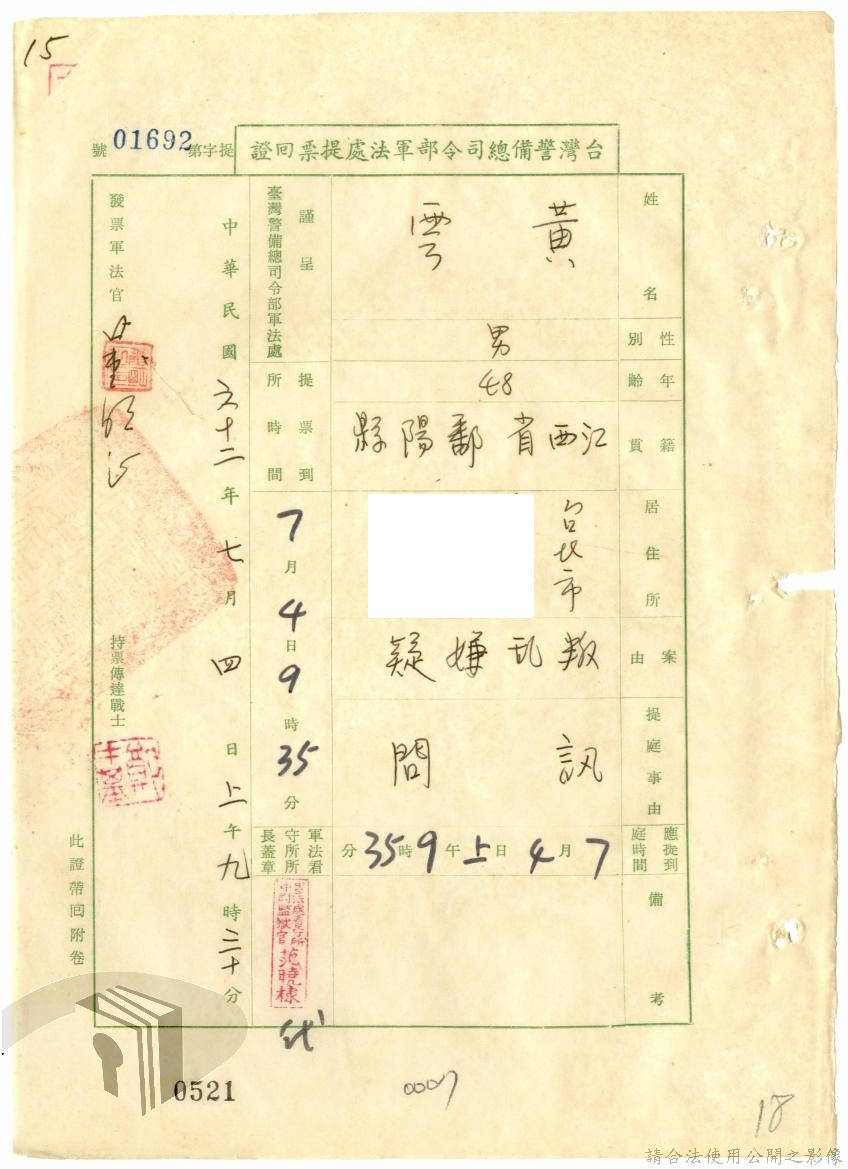 15
台灣警備總司令部軍法處提票回證
提字第01692號
姓名
黃雲
性別
男
年齡
48
籍貫
江西省鄱陽縣
居住所
台北市
案由
叛乱嫌疑
提庭事由
訊問
應提到庭時間
7月4日上午9時35分
備考
謹呈
臺灣警備總司令部軍法處
提票到所時間
7月4日9時35分
軍法看守所所長蓋章
中尉監獄官范曉棣
代
中華民國六十二年七月四日上午九時三十分
發票軍法官
持票傳達戰士
此證帶回附卷
0521
0007
18
請合法使用公開之影像